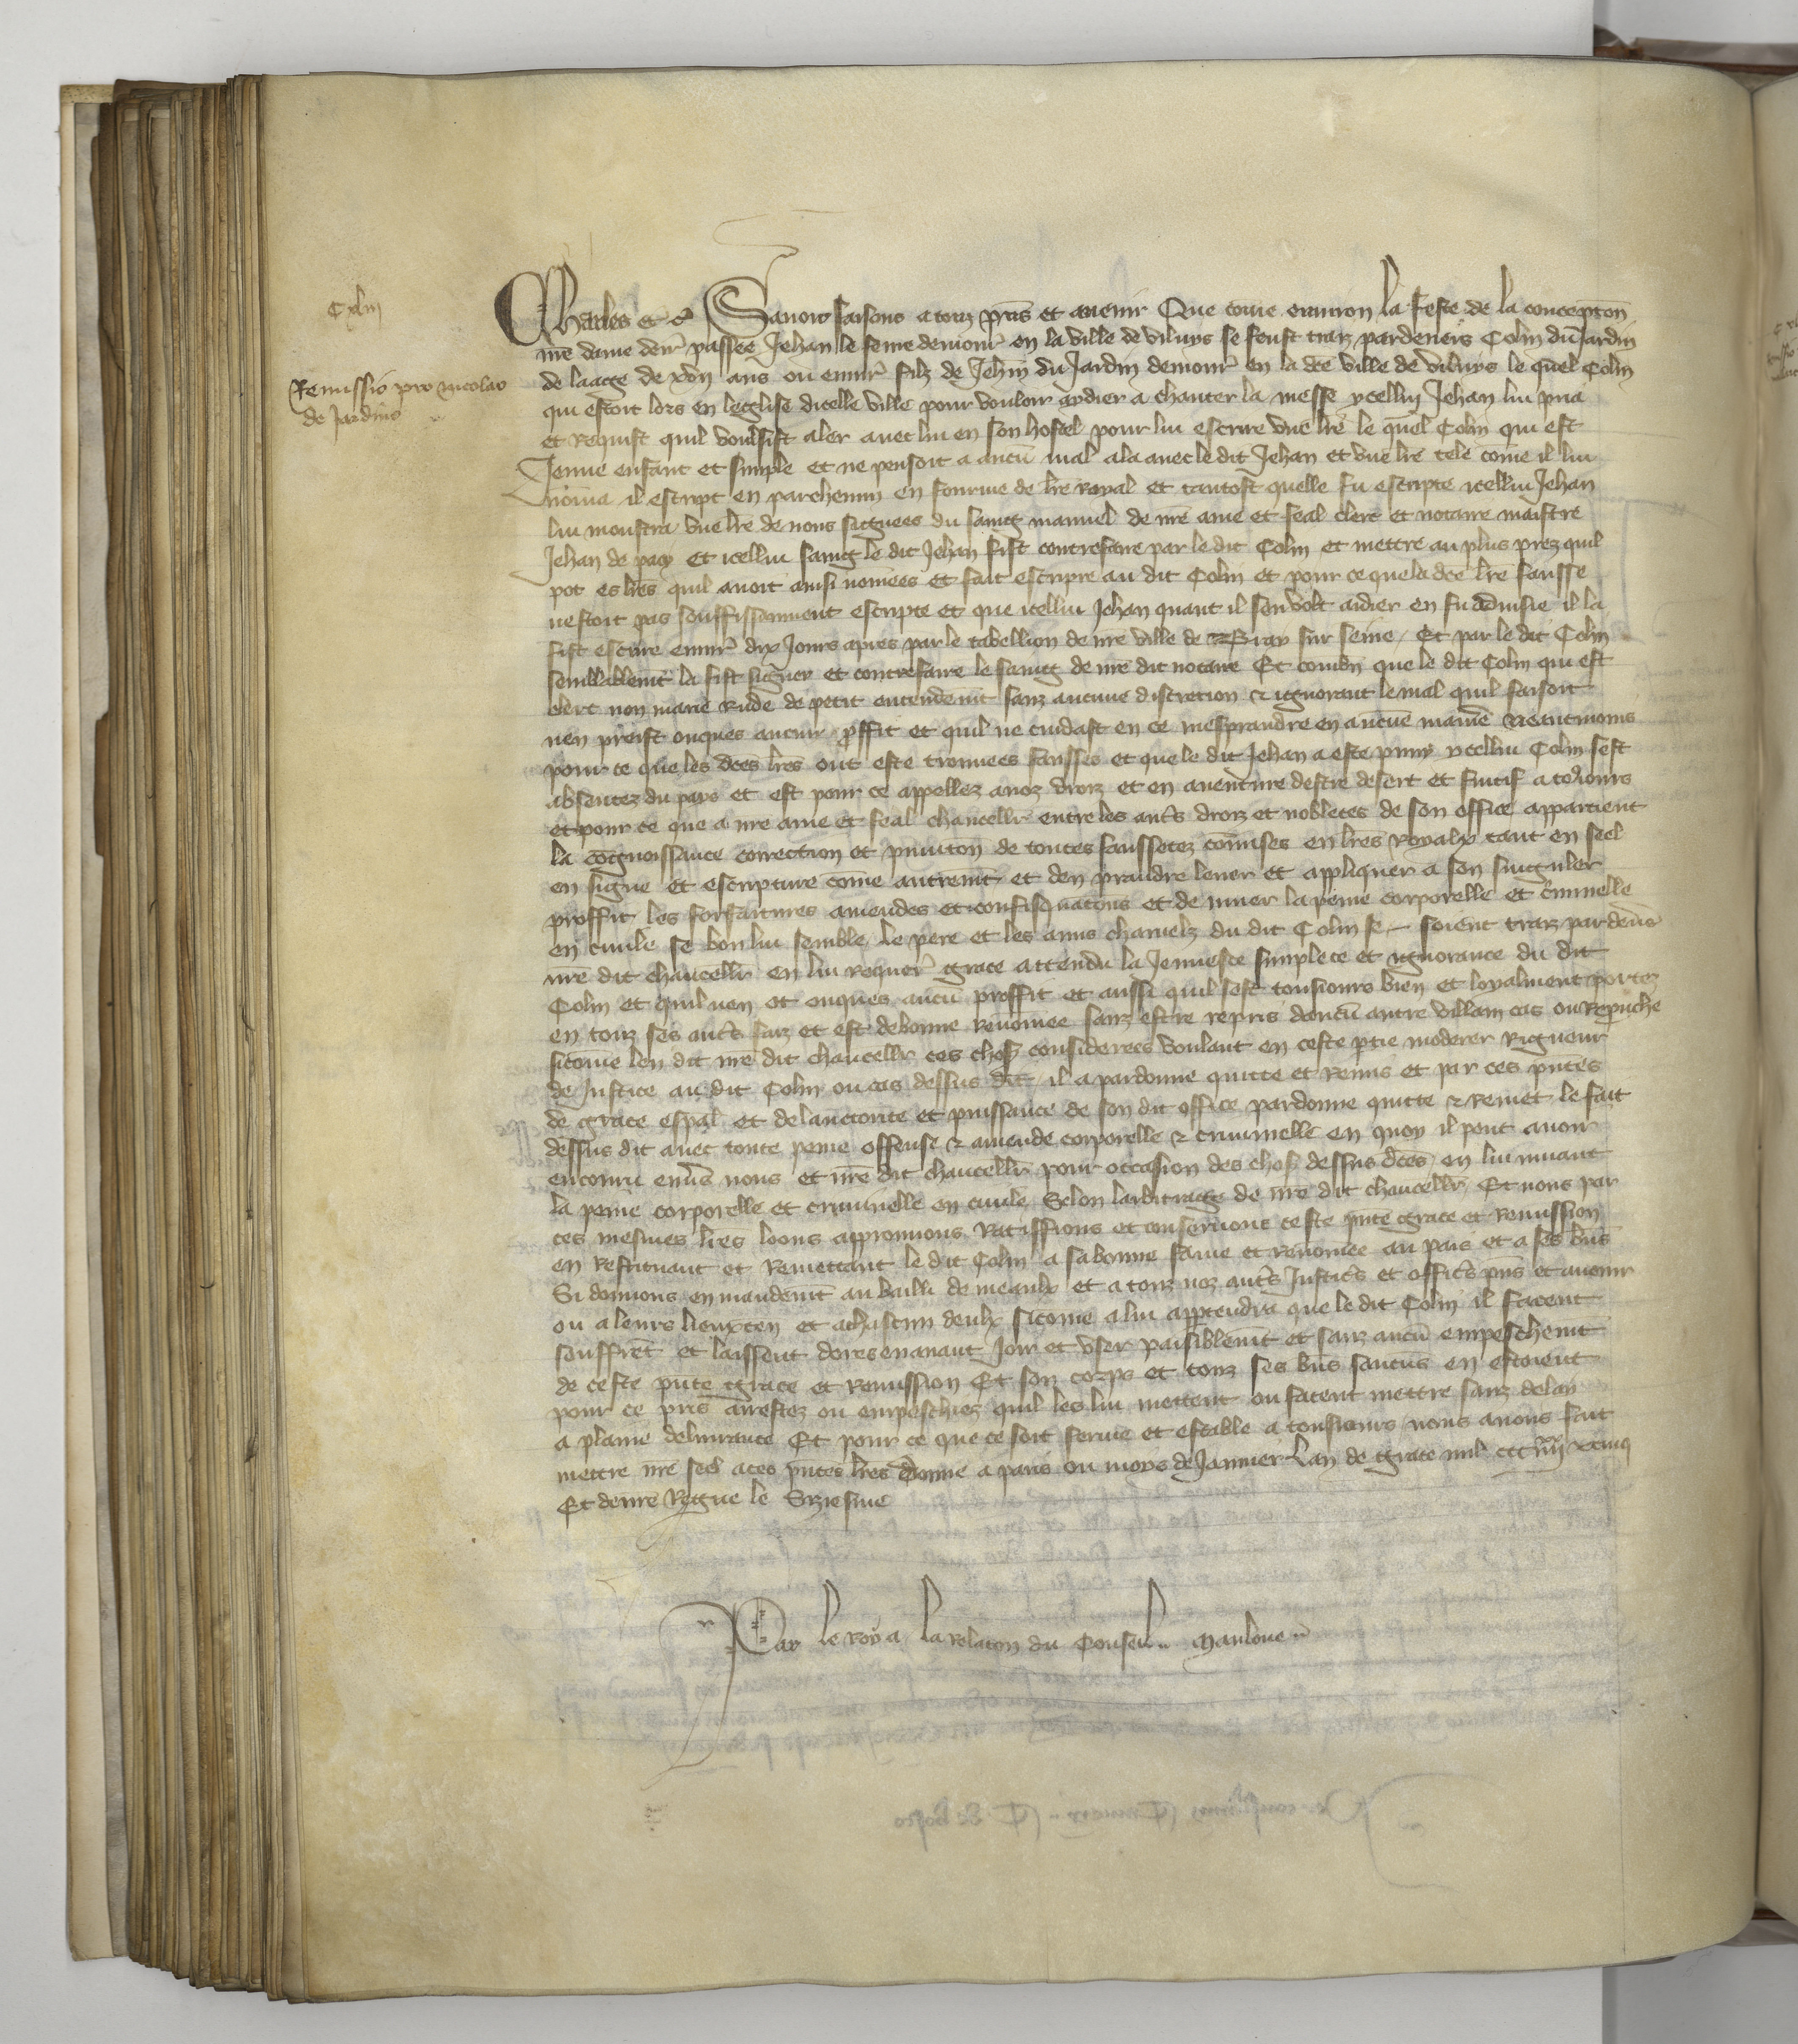 Cxliii
Remissio pro Nicolao
de Jardino
Charles et c̃ Savoir faisons a touz p̃ns et avenir Que come environ la feste de la concepcōn
nr̃e dame derr̃ passee Jehan le feme demour̃ en la ville de vilurs se feust traiz pardevers Colin du Jardin
de laage de xvɪɪ ans ou envir̃ filz de Jehan du Jardin demour̃ en la dc̃e ville de vilurs le quel Colin
qui estoit lors en leglise dicelle ville pour vouloir aydier a chanter la messe ycellui Jehan lui pria
et requist quil voulsist aler avec lui en son hostel pour lui escrire une lr̃e le quel Colin qui est
Jeune enfant et simple et ne pensoit a aucũ mal ala avec le dit Jehan et une lr̃e tele cōme il lui
nōma il escript en parchemin en fourme de lr̃e royal et tantost quelle fu escripte icellui Jehan
lui monstra une lr̃e de nous signees du saing manuel de nr̃e ame et feal clerc et notaire maistre
Jehan de pacy et icellui saing le dit Jehan fist contrefaire par le dit Colin et mettre au plus prez quil
pot es lr̃es quil avoit ainsi nōmees et fait escripre au dit Colin et pour ce que la dc̃e lr̃e fausse
nestoit pas souffissanment escripte et que icellui Jehan quant il sen volt aidier en fu advisie il la
fist escrire envir̃ dix jours apres par le tabellion de nr̃e ville de Bray sur seine / Et par le dit Colin
semblablemt̃ la fist signer et contrefaire le saing de nr̃e dit notaire Et combn̄ que le dit Colin qui est
clerc non marie rude de petit entendemt̃ sanz aucune discrecion et ignorant le mal quil faisoit
nen preist onques aucun proffit et quil ne cuidast en ce mesprandre en aucune manie᷑ neantmoins
pour ce que les dc̃es lr̃es ont este trouvees fausses et que le dit Jehan a este puny ycellui Colin sest
absentez du pays et est pour ce appellez a noz droiz et en aventure destre desert et fuitif a tousjours
et pour ce que a nr̃e ame et feal chancellr̃ entre les aut᷑s droiz et nobleces de son office appartient
la cognoissance correction et punicōn de toutes faussetez cōmises en lr̃es royalx tant en seel
en signe et escripture cōme autremt̃ et den prandre lever et appliquer a son singuler
proffit les forfaitures amendes et confisquacōns et de muer la peine corporelle et c᷑minelle
en civile se bon lui semble / le pere et les amis charnelz du dit Colin se soient traiz pardevers
nr̃e dit chancellr̃ en lui requer̃ grace attendu la Jeunesce simplece et ygnorance du dit
Colin et quil nen ot onques aucũ proffit et aussi quil sest tousjours bien et loyalment portez
en touz ses aut᷑s faiz et est de bonne renōmee sanz estre repris daucũ autre villain cas ou reprouche
sicōme len dit nr̃e dit chancellr̃ ces choses considerees voulant en ceste partie moderer rigueur
de Justice au dit Colin ou cas dessus dit / il a pardonne quitte et remis et par ces pñtes
de grace esp̃al et de lauctorite et puissance de son dit office pardonne quitte et remet le fait
dessus dit avec toute peine offense et amende corporelle et criminelle en quoy il peut avoir
encouru env᷑s nous et nr̃e dit chancellr̃ pour occasion des choses dessus dc̃es en lui muant
la peine corporelle et criminelle en civile Selon larbitrage de nr̃e dit chancellr̃ / Et nous par
ces mesmes lr̃es loons approuvons ratiffions et confermons ceste pñte grace et remission
en restituant et remettant le dit Colin a sa bonne fame et renōmee au pais et a ses biens
Si donnons en mandemt̃ au bailli de meaulx et a touz noz aut᷑s Justic᷑s et offic᷑s pñs et avenir
ou a leurs lieuxten̄ et a chascun deulx sicōme a lui appartendra que le dit Colin il facent
souffrent et laissent doresenavant Joir et user paisiblemt̃ et sanz aucũ empeschemt̃
de ceste pñte grace et remission Et son corps et touz ses biens saucuns en estoient
pour ce pris arrestez ou empeschiez quil les lui mettent ou facent mettre sanz delay
a plaine delivrance Et pour ce que ce soit ferme et estable a tousjours nous avons fait
mettre nr̃e seel a ces pñtes lr̃es Donne a paris ou moys de Janvier Lan de grace mil ccc iiiixx xcinq
Et de nr̃e Regne le Siziesme
Par le Roy a la relacōn du Conseil .. Mauloue